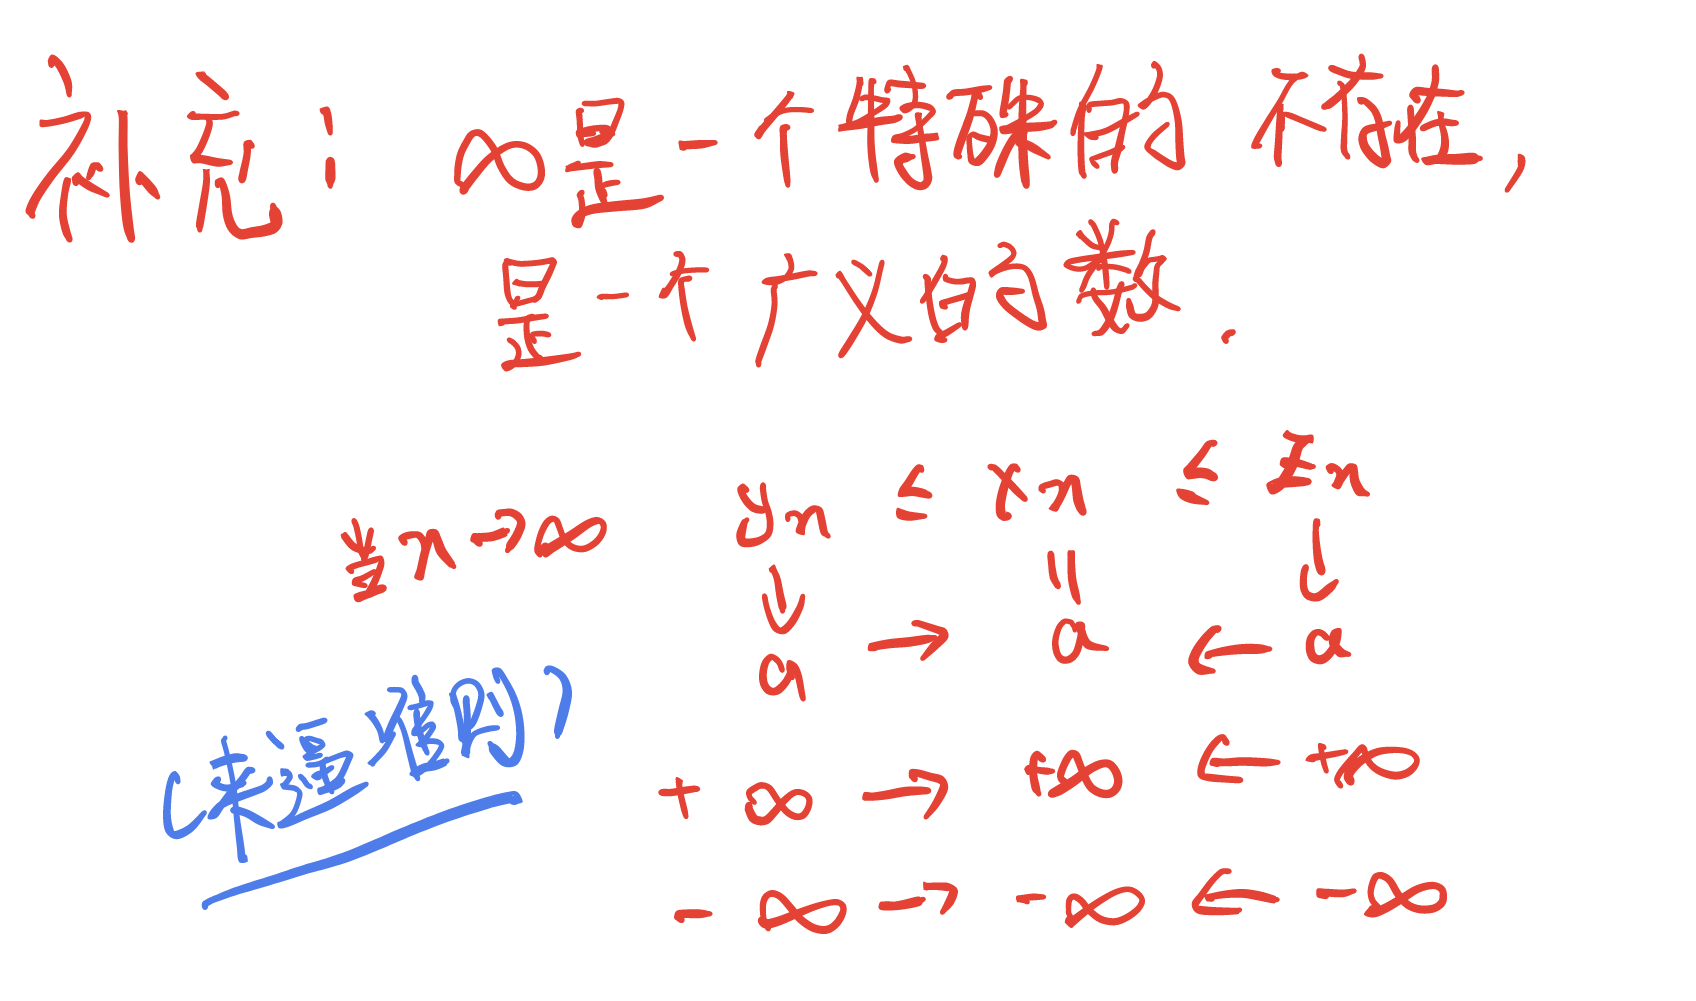 补充： ∞是一个特殊的 不存在，
是一个广义的数.
当n→∞ yn ≤ xn ≤ zn
↓ || ↓
a → a ← a
(夹逼准则)
+∞ → +∞ ← +∞
-∞ → -∞ ← -∞